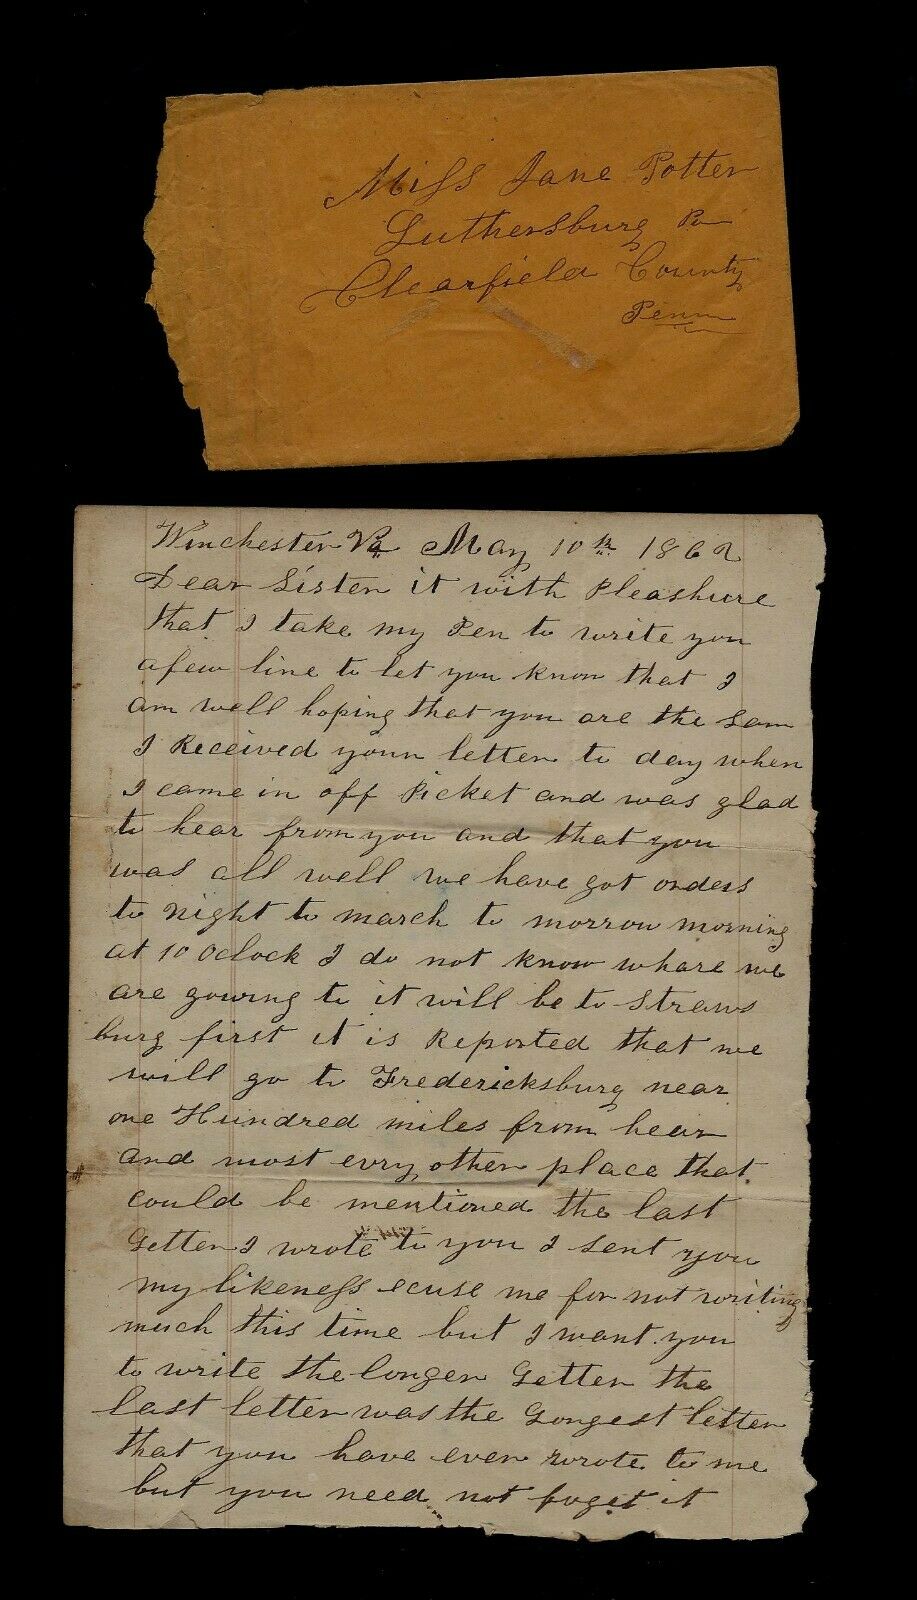 Miss Jane Potter
Luthersburg Pa
Clearfield County
Penn
Winchester Va May 10th 1862
Dear Sister it with Pleashure
that I take my Pen to write you
afew line to let you know that I
am well hoping that you are the Sam
I Received your letter to day when
I came in off Picket and was glad
to hear from you and that you
was all well we have got orders
to night to march to morrow morning
at 10 Oclock I do not know whare we
are gowing to it will be to Straws
burg first it is Reported that we
will go to Fredericksburg near
one Hundred miles from hear
and most evry other place that
could be mentioned the last
Letter I wrote to you I sent you
my likeness ecuse me for not writing
much this time but I want you
to write the longer Letter the
last letter was the Longest letter
that you have ever wrote to me
but you need not foget it